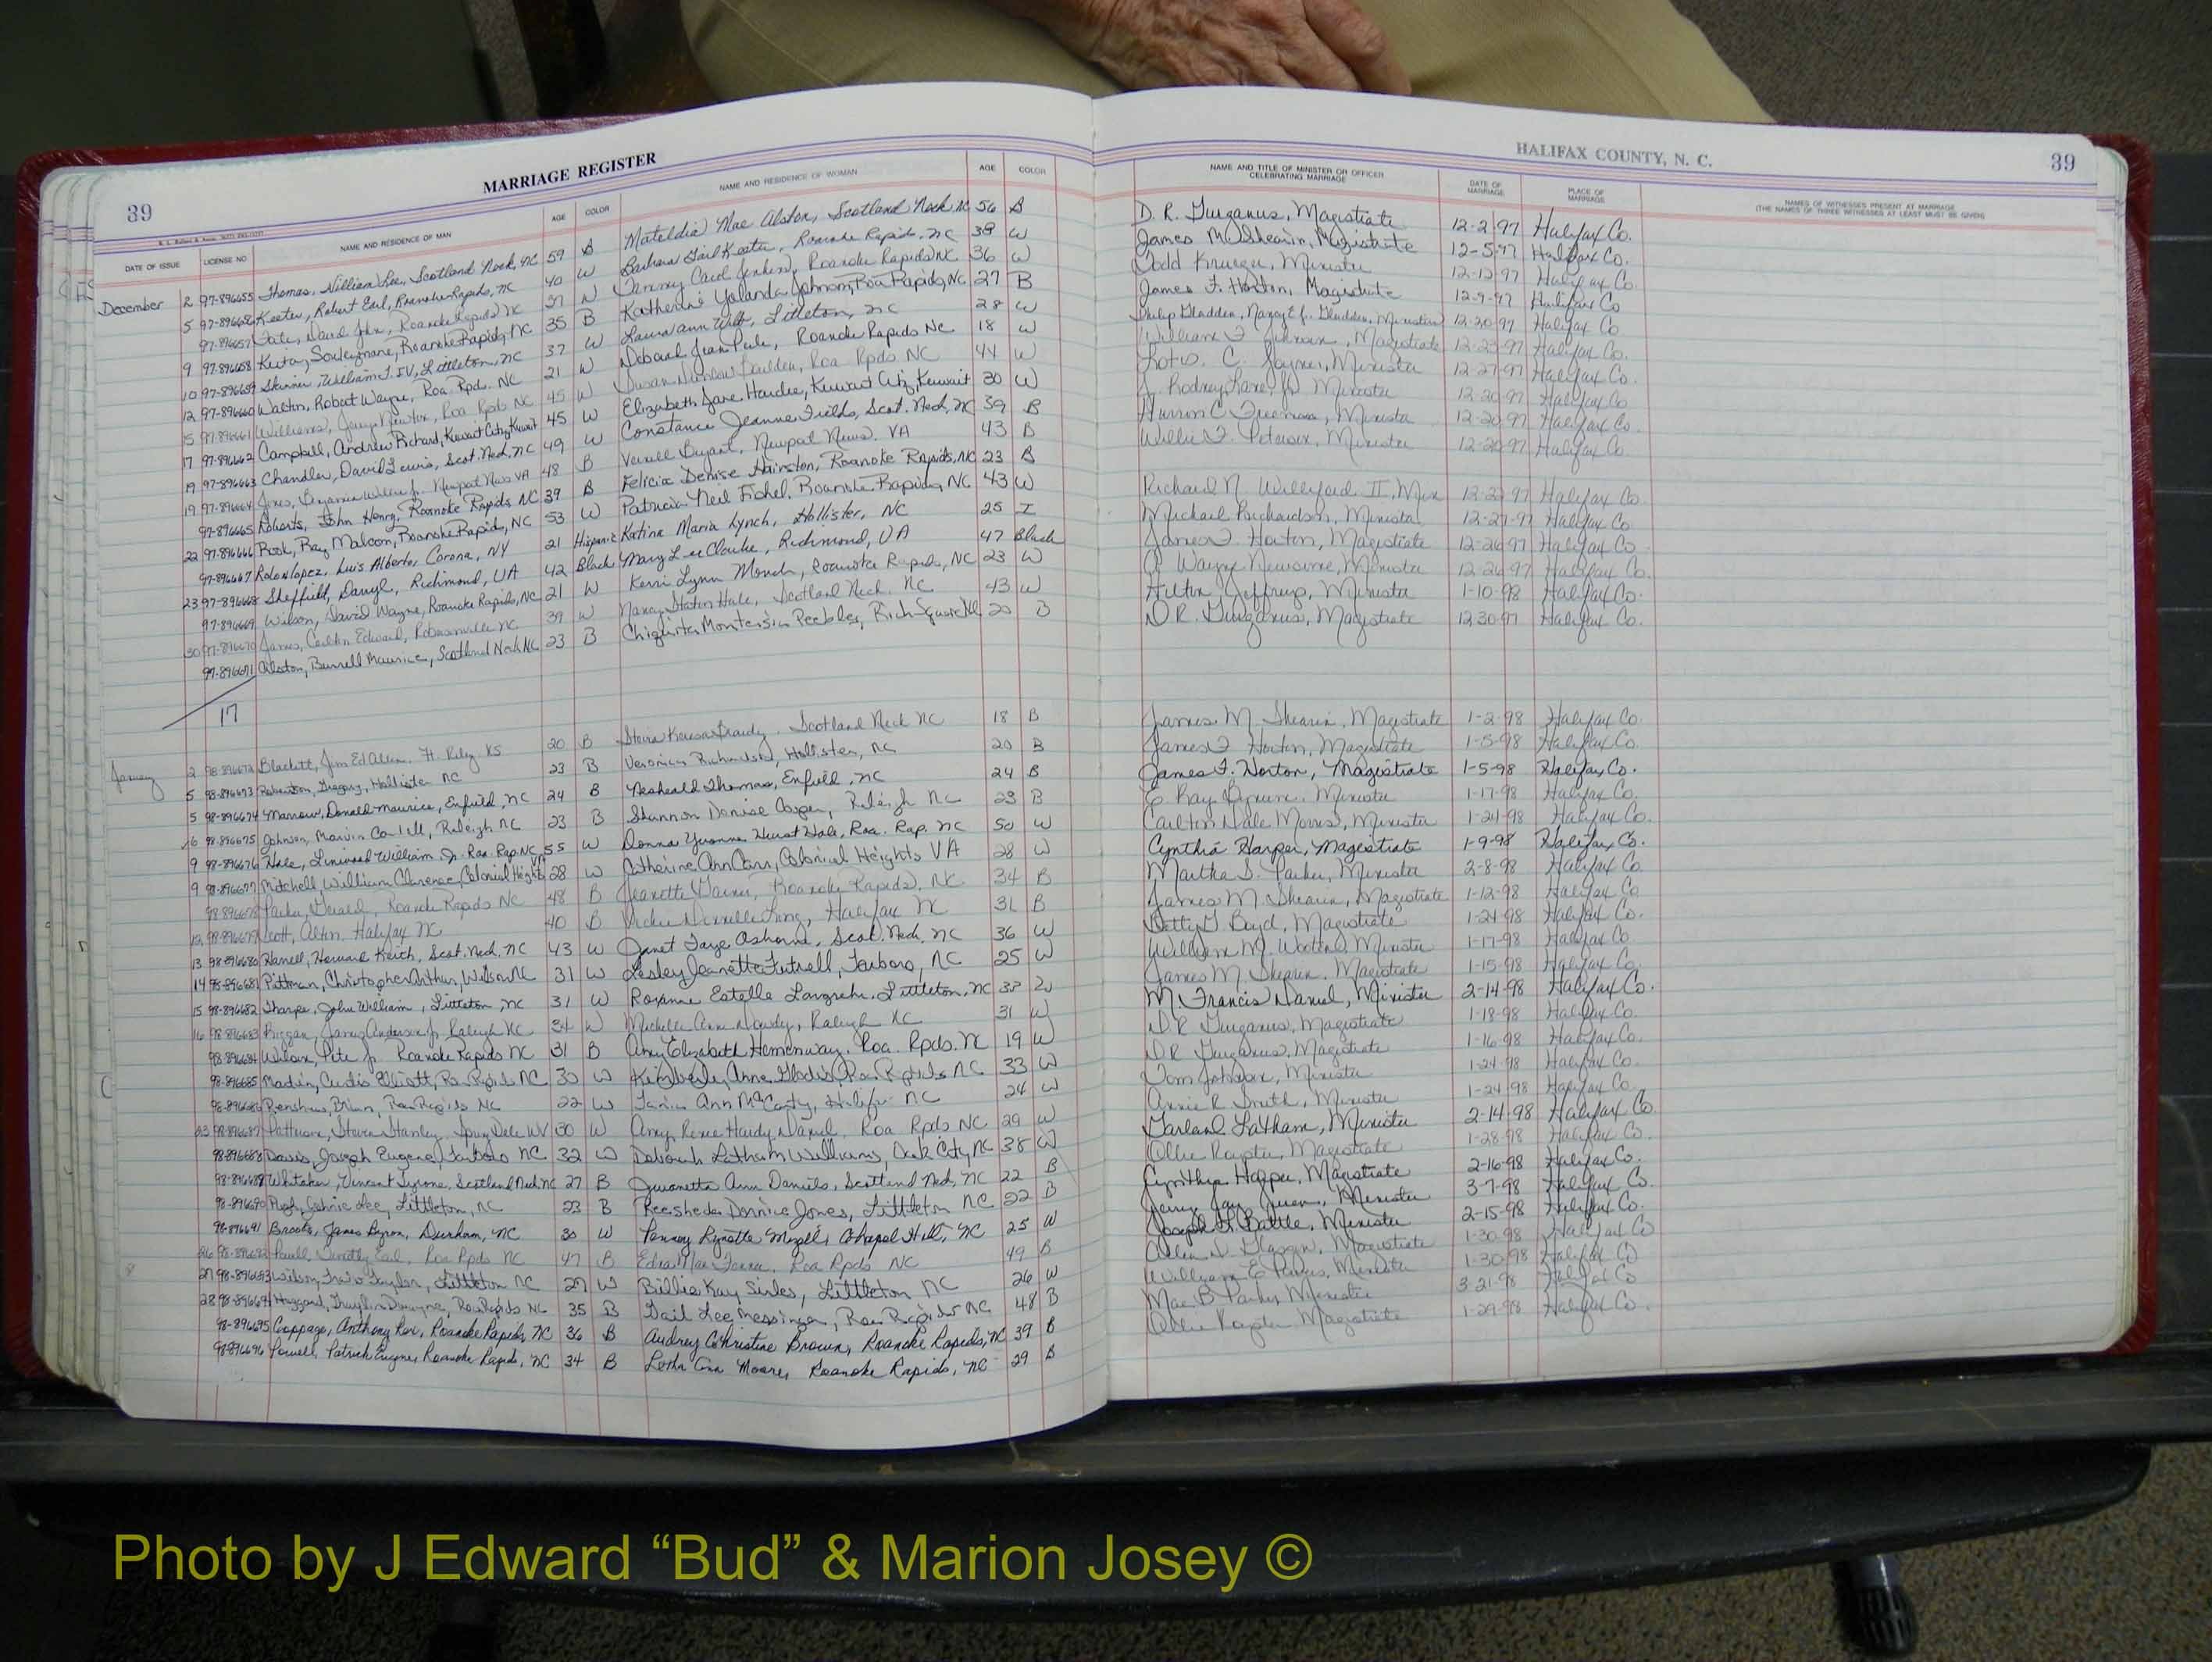 39 MARRIAGE REGISTER
HALIFAX COUNTY, N. C. 39
DATE OF ISSUE LICENSE NO NAME AND RESIDENCE OF MAN AGE COLOR NAME AND RESIDENCE OF WOMAN AGE COLOR NAME AND TITLE OF MINISTER OR OFFICER CELEBRATING MARRIAGE DATE OF MARRIAGE PLACE OF MARRIAGE NAMES OF WITNESSES PRESENT AT MARRIAGE (THE NAMES OF THREE WITNESSES AT LEAST MUST BE GIVEN)
December 2 97-896655 Thomas, William Lee, Scotland Neck, NC 59 B Mateldia Mae Alston, Scotland Neck, NC 56 B D. R. Gurganus, Magistrate 12-2-97 Halifax Co.
5 97-896656 Keeter, Robert Earl, Roanoke Rapids, NC 40 W Barbara Gail Keeter, Roanoke Rapids, NC 38 W James M. Shearin, Magistrate 12-5-97 Halifax Co.
97-896657 Tate, David John, Roanoke Rapids NC W Carol Jenkins, Roanoke Rapids NC 36 W Todd Krueger, Minister Halifax Co.
9 97-896658 Keita, Souleymane, Roanoke Rapids, NC 35 B Katherine Yolanda Johnson, Roa Rapids, NC 27 B James F. Horton, Magistrate 12-9-97 Halifax Co
10 97-896659 Skinner, William T. IV, Littleton, NC 37 W Laura Ann Littleton, NC 28 W Philip Gladden, Minister 12-20-97 Halifax Co
12 97-896660 Walton, Robert Wayne, Roa. Rpds. NC 21 W Deborah Jean Roanoke Rapids NC 18 W William F. Johnson, Magistrate Halifax Co.
15 97-896661 Williams, Roa Rpds NC 45 W Susan Roa Rpds NC 44 W C. Joyner, Minister 12-27-97 Halifax Co.
17 97-896662 Campbell, Andrew Richard, Kuwait City, Kuwait 45 W Elizabeth Jane Hardee, Kuwait City, Kuwait 30 W J. Rodney Minister 12-20-97 Halifax Co
19 97-896663 Chandler, David Lewis, Scot. Neck, NC 49 W Constance Jeanne Fields, Scot. Neck, NC 39 B Freeman, Minister 12-20-97 Halifax Co.
19 97-896664 Jones, Benjamin Willie Jr. Newport News VA 48 B Bryant, Newport News. VA 43 B Willie F. Peterson, Minister 12-20-97 Halifax Co.
97-896665 Roberts, John Henry, Roanoke Rapids NC 39 B Felicia Denise Hairston, Roanoke Rapids, NC 23 B
22 97-896666 Book, Ray Malcom, Roanoke Rapids, NC 53 W Patricia Neil Fishel, Roanoke Rapids, NC 43 W Richard N. Williford II, Min 12-22-97 Halifax Co.
97-896667 Luis Alberto, Corona, NY 21 Hispanic Katina Maria Lynch, Hollister, NC 25 I Michael Richardson, Minister 12-27-97 Halifax Co.
23 97-896668 Sheffield, Darryl, Richmond, VA 42 Black Mary Lee Clarke, Richmond, VA 47 Black James F. Horton, Magistrate 12-26-97 Halifax Co
97-896669 Wilson, David Wayne, Roanoke Rapids, NC 21 W Kerri Lynn Roanoke Rapids, NC 23 W Wayne Newsome, Minister 12-26-97 Halifax Co.
30 97-896670 James, Edward, Robersonville NC 39 W Nancy Staton Hale, Scotland Neck, NC 43 W Hilton Jeffreys, Minister 1-10-98 Halifax Co.
97-896671 Alston, Burrell Maurice, Scotland Neck NC 23 B Chiquita Peebles, Rich Square NC 20 B D. R. Gurganus, Magistrate 12-30-97 Halifax Co.
17
January 2 98-896672 Blackett, Jim Ed Allen. Ft. Riley KS 20 B Scotland Neck NC 18 B James M. Shearin, Magistrate 1-2-98 Halifax Co
5 98-896673 Gregory, Hollister NC 23 B Veronica Richardson, Hollister, NC 20 B James F. Horton, Magistrate 1-5-98 Halifax Co.
5 98-896674 Marrow, Donald Maurice, Enfield, NC 24 B Thomas, Enfield, NC 24 B James F. Horton, Magistrate 1-5-98 Halifax Co.
6 98-896675 Johnson, Marvin Raleigh NC 23 B Shannon Denise Cooper, Raleigh NC 23 B C. Ray Minister 1-17-98 Halifax Co.
9 98-896676 Hale, Linwood William Jr. Roa. Rap. NC 55 W Donna Yvonne Hurst Hale, Roa. Rap. NC 50 W Carlton Dale Morris, Minister 1-24-98 Halifax Co.
9 98-896677 Mitchell, William Clarence, Colonial Heights VA 28 W Catherine Ann Carr, Colonial Heights VA 28 W Cynthia Harper, Magistrate 1-9-98 Halifax, Co.
98-896678 Parker, Roanoke Rapids NC 48 B Jeanette Roanoke Rapids, NC 34 B Martha S. Parker, Minister 2-8-98 Halifax Co.
12 98-896679 Scott, Alton, Halifax NC 40 B Halifax NC 31 B James M. Shearin, Magistrate 1-12-98 Halifax Co
13 98-896680 Harrell, Howard Keith, Scot. Neck, NC 43 W Janet Faye Scot. Neck, NC 36 W Betty Boyd, Magistrate 1-24-98 Halifax Co.
14 98-896681 Pittman, Christopher Arthur, Wilson NC 31 W Lesley Jeanette Futrell, Tarboro, NC 25 W William M. Minister 1-17-98 Halifax Co
15 98-896682 Tharpe, John William, Littleton, NC 31 W Roxanne Estelle Littleton, NC W James M. Shearin, Magistrate 1-15-98 Halifax Co.
16 98-896683 James Anderson Jr. Raleigh NC 34 W Michelle Ann Raleigh NC 31 W M. Francis Daniel, Minister 2-14-98 Halifax Co.
98-896684 Wilson, Pete Jr. Roanoke Rapids NC 31 B Amy Elizabeth Hemenway, Roa. Rpds. NC 19 W D R Gurganus, Magistrate 1-18-98 Halifax Co.
98-896685 Curtis Elliott, Roa Rapids NC 30 W Kimberly Anne Roa Rapids NC 33 W D R Gurganus, Magistrate 1-16-98 Halifax Co.
98-896686 Renshaw, Brian, Roa Rapids NC 22 W Ann McCarty, Halifax NC 24 W Tom Johnson, Minister 1-24-98 Halifax Co.
23 98-896687 Patterson, Steven Stanley, WV 30 W Amy Renee Hardy Daniel, Roa Rpds NC 29 W Annie R. Smith, Minister 1-24-98 Halifax Co
98-896688 Davis, Joseph Eugene, Tarboro NC 32 W Deborah Latham Williams, Oak City, NC 38 W Garland Latham, Minister 2-14-98 Halifax Co
98-896689 Whitaker, Vincent Tyrone, Scotland Neck NC 27 B Ann Daniels, Scotland Neck, NC 22 B Ollie Magistrate 1-28-98 Halifax Co.
98-896690 Pugh, Lee, Littleton, NC 23 B Jones, Littleton NC 22 B Cynthia Harper, Magistrate 2-16-98 Halifax Co.
98-896691 Brooks, James Byron, Durham, NC 30 W Penney Lynette Chapel Hill, NC 25 W Jerry Minister 3-7-98 Halifax Co.
26 98-896692 Powell, Timothy Earl, Roa Rpds NC 47 B Edna Mae Roa Rpds NC 49 B Joseph H. Battle, Minister 2-15-98 Halifax Co.
27 98-896693 Wilson, Taylor, Littleton NC 27 W Billie Kay Littleton NC 26 W Magistrate 1-30-98 Halifax Co
28 98-896694 Dwayne, Roa Rapids NC 35 B Gail Lee Roa Rapids NC 48 B William E. Minister 1-30-98 Halifax Co
98-896695 Coppage, Anthony Roanoke Rapids, NC 36 B Audrey Christine Brown, Roanoke Rapids, NC 39 B Mae B Parker Minister 3-21-98 Halifax Co
98-896696 Powell, Patrick Eugene, Roanoke Rapids, NC 34 B Letha Ann Moore, Roanoke Rapids, NC 29 B Ollie Magistrate 1-29-98 Halifax Co.
Photo by J Edward “Bud” & Marion Josey ©